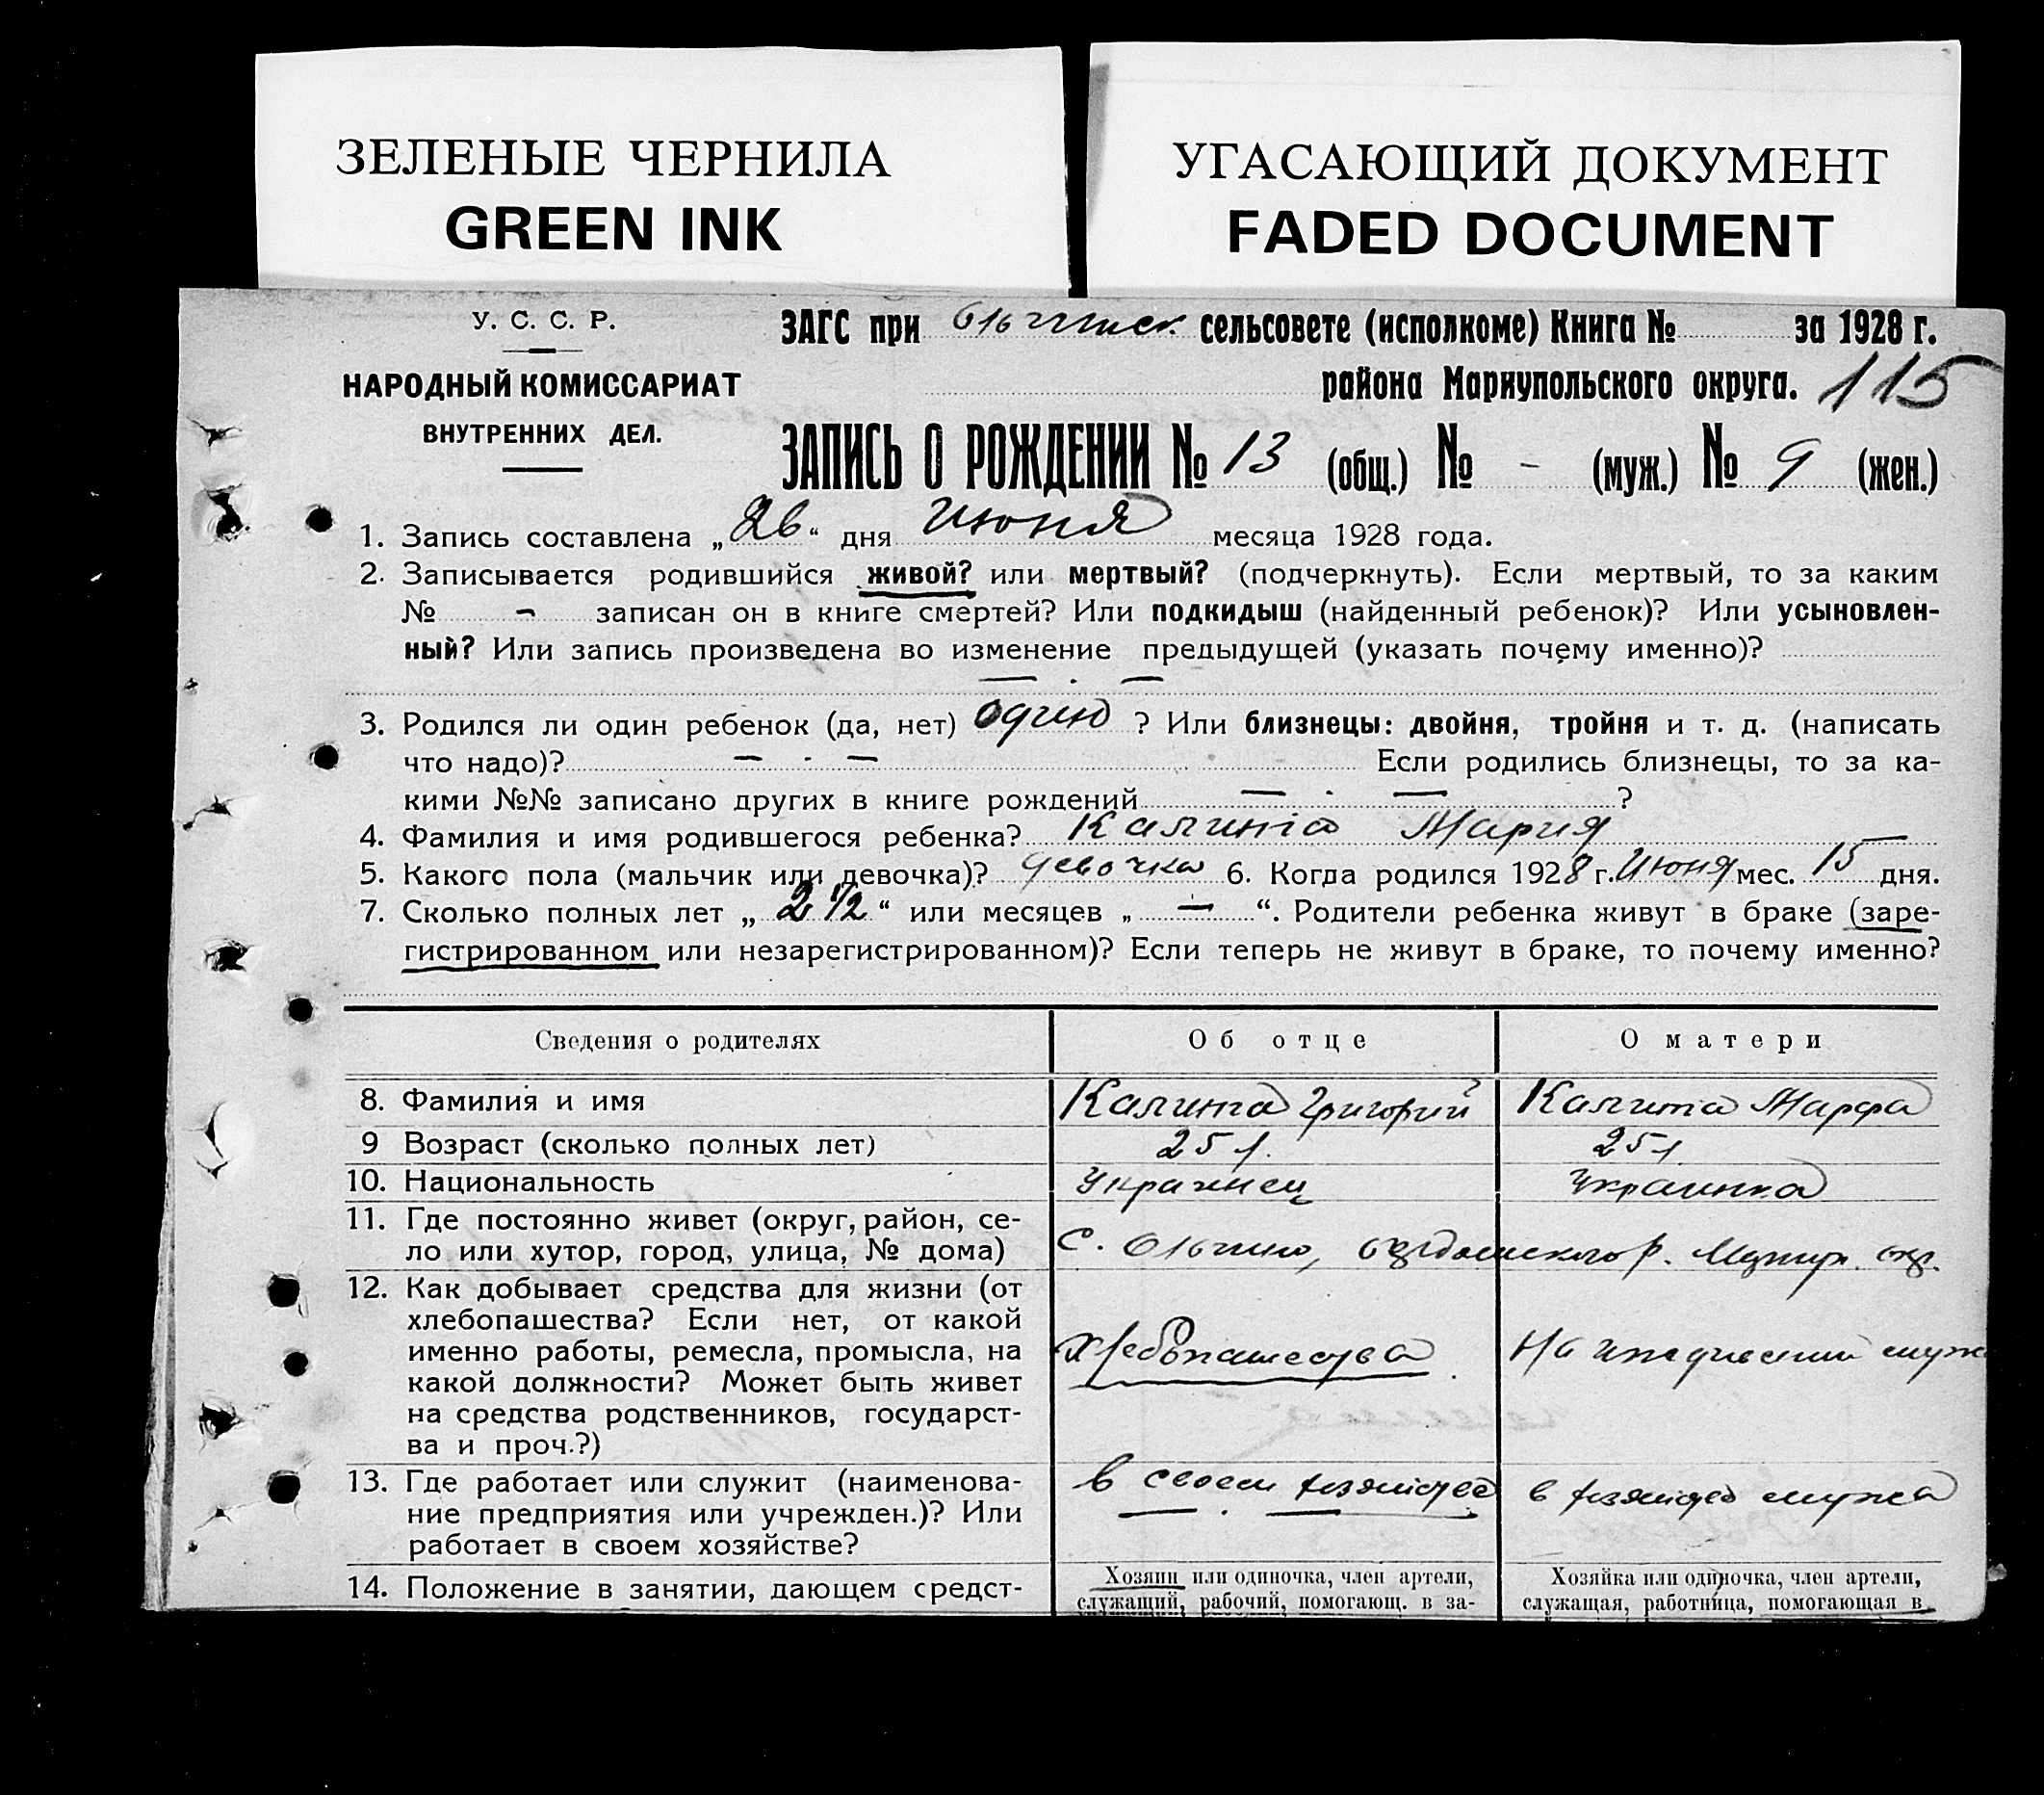 ЗЕЛЕНЫЕ ЧЕРНИЛА
GREEN INK
УГАСАЮЩИЙ ДОКУМЕНТ
FADED DOCUMENT
У. С. С. Р.
НАРОДНЫЙ КОМИССАРИАТ
ВНУТРЕННИХ ДЕЛ.
ЗАГС при сельсовете (исполкоме) Книга № за 1928 г.
района Мариупольского округа. 115
ЗАПИСЬ О РОЖДЕНИИ № 13 (общ.) № - (муж.) № 9 (жен.)
1. Запись составлена „26“ дня Июня месяца 1928 года.
2. Записывается родившийся живой? или мертвый? (подчеркнуть). Если мертвый, то за каким
№ - записан он в книге смертей? Или подкидыш (найденный ребенок)? Или усыновлен-
ный? Или запись произведена во изменение предыдущей (указать почему именно)?
— . —
3. Родился ли один ребенок (да, нет) ? Или близнецы: двойня, тройня и т. д. (написать
что надо)? — . — Если родились близнецы, то за ка-
кими №№ записано других в книге рождений — . — ?
4. Фамилия и имя родившегося ребенка? Калита Мария
5. Какого пола (мальчик или девочка)? девочка 6. Когда родился 1928 г. Июня мес. 15 дня.
7. Сколько полных лет „2 1/2“ или месяцев „—“. Родители ребенка живут в браке (заре-
гистрированном или незарегистрированном)? Если теперь не живут в браке, то почему именно?
Сведения о родителях Об отце О матери
8. Фамилия и имя Калита Григорий Калита Марфа
9 Возраст (сколько полных лет) 25 л. 25 л
10. Национальность Украинец Украинка
11. Где постоянно живет (округ, район, се-
ло или хутор, город, улица, № дома) с. р. окр.
12. Как добывает средства для жизни (от
хлебопашества? Если нет, от какой
именно работы, ремесла, промысла, на
какой должности? Может быть живет
на средства родственников, государст-
ва и проч.?)
Хлебопашества
На иждивении мужа
13. Где работает или служит (наименова-
ние предприятия или учрежден.)? Или
работает в своем хозяйстве?
в своем хозяйстве
в хозяйстве мужа
14. Положение в занятии, дающем средст-
Хозяин или одиночка, член артели,
служащий, рабочий, помогающ. в за-
Хозяйка или одиночка, член артели,
служащая, работница, помогающая в